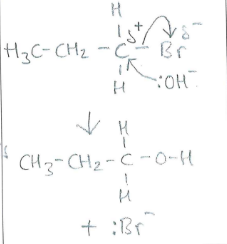 H
δ+ δ-
H3C-CH2-C-Br
H :OH-
H
CH3-CH2-C-O-H
H
+ :Br-